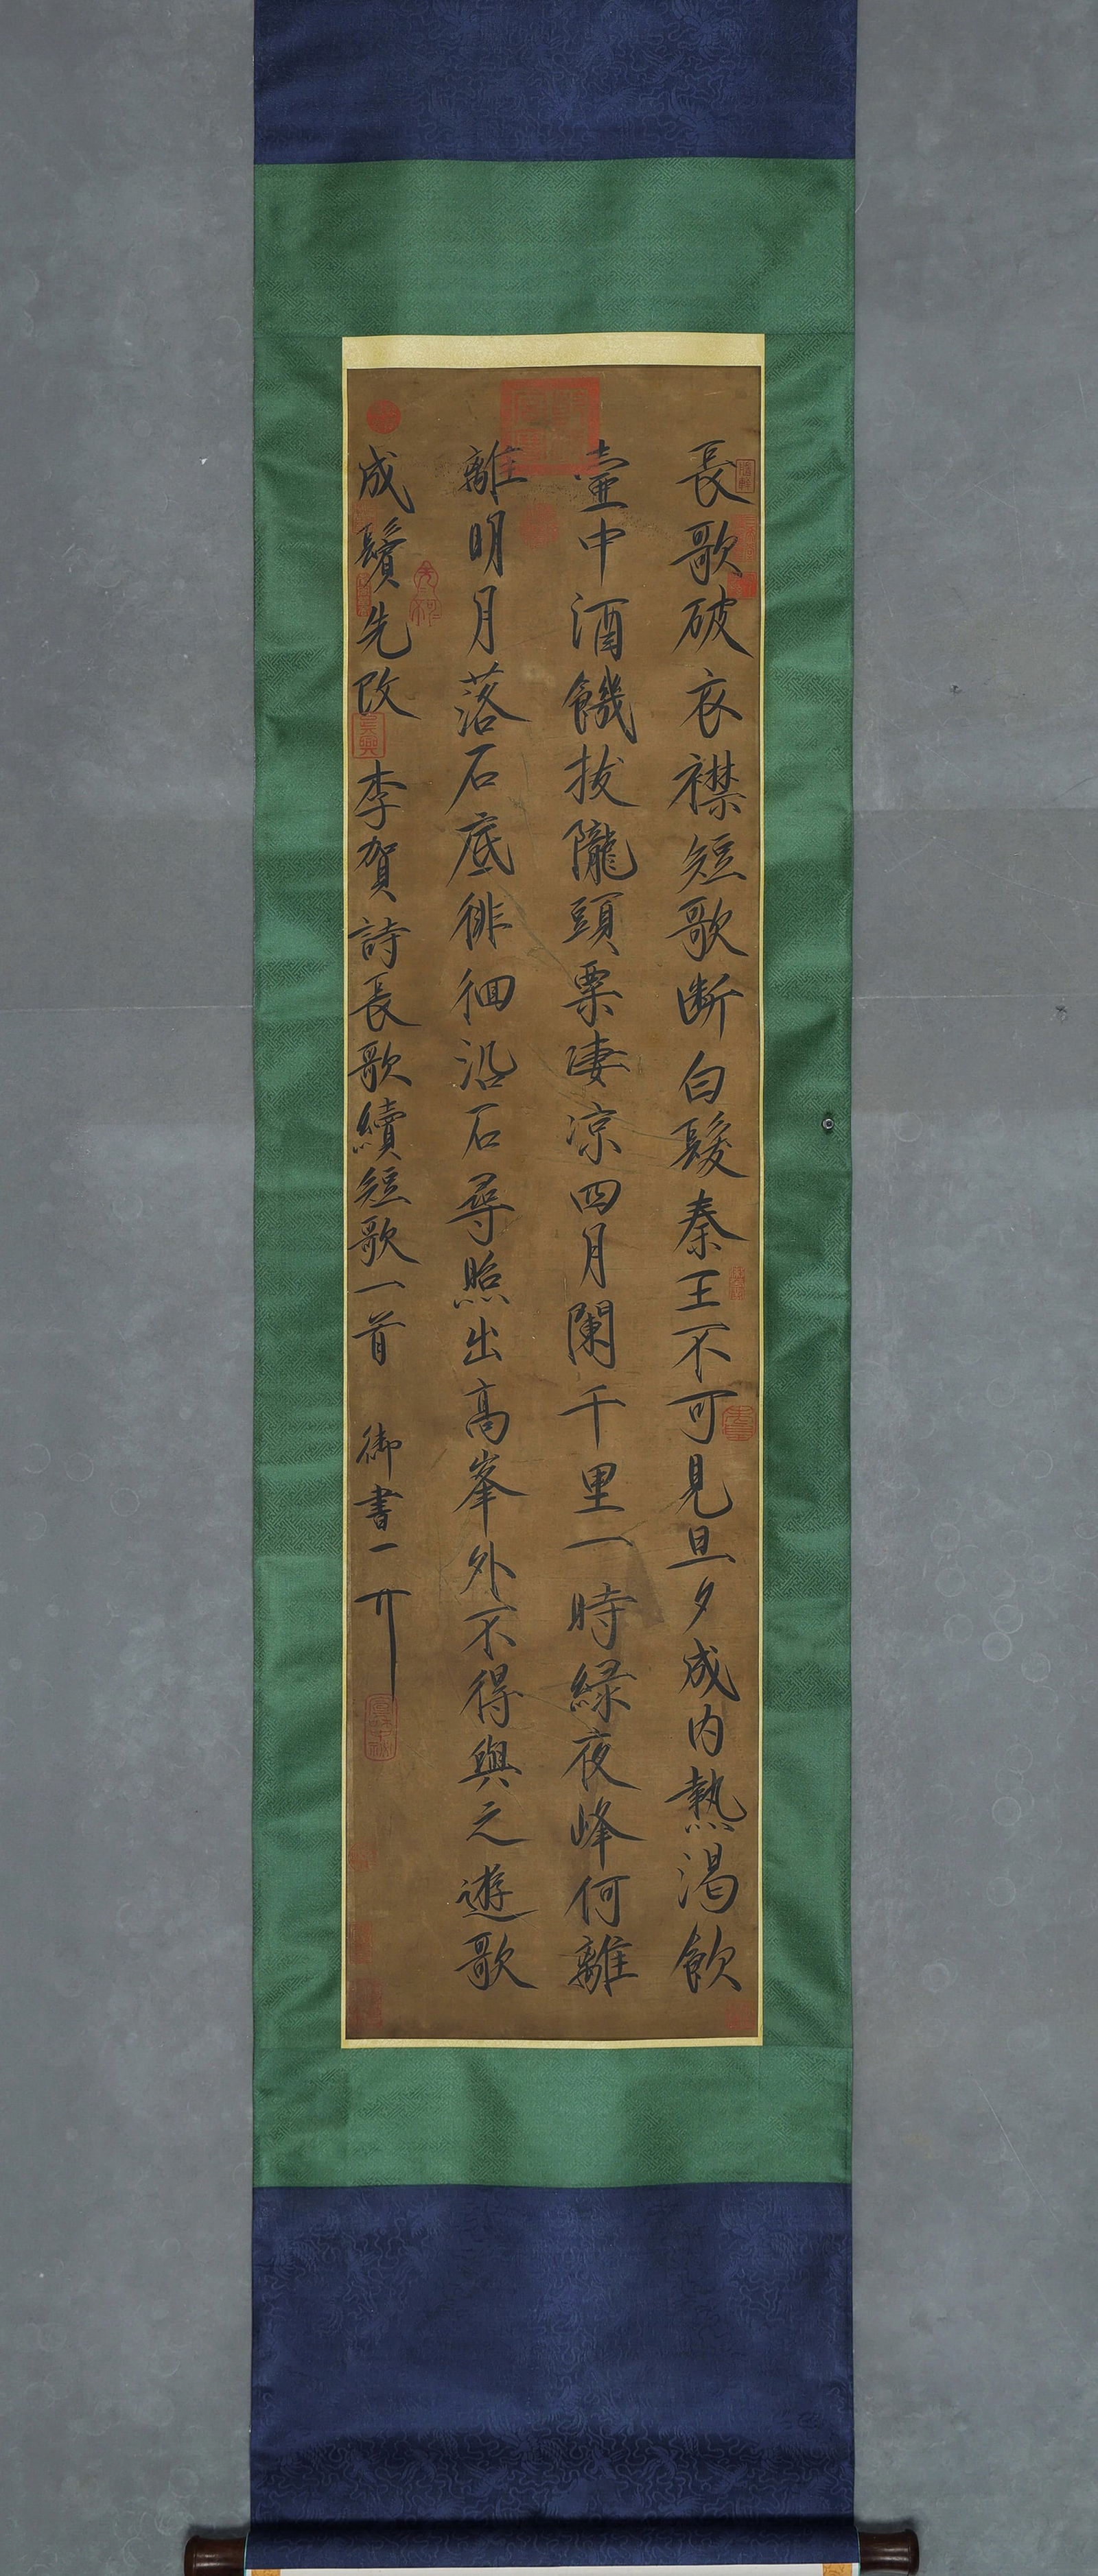 長歌破衣襟短歌断白髮秦王不可見旦夕成内熱渴飲
壺中酒饑拔隴頭粟凄凉四月闌千里一時緑夜峰何離
離明月落石底徘徊沿石尋照出高峯外不得與之遊歌
成鬢先改 李賀詩長歌續短歌一首 御書
吳興